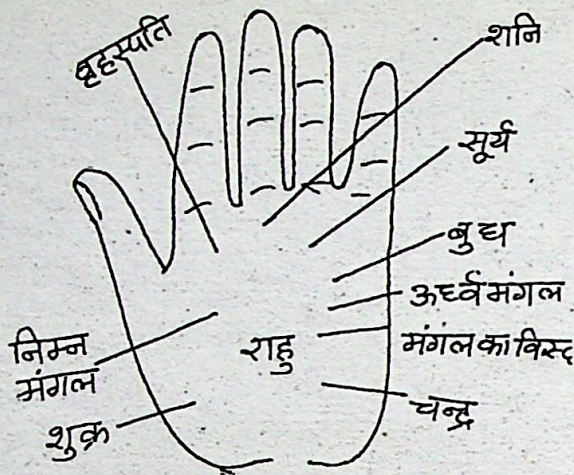 बृहस्पति
शनि
सूर्य
बुध
ऊर्ध्व मंगल
मंगल का विस्द
राहु
निम्न
मंगल
चन्द्र
शुक्र